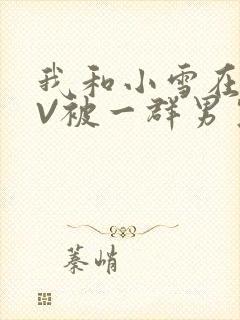 我和小雪在
V被一群男
蓁峭